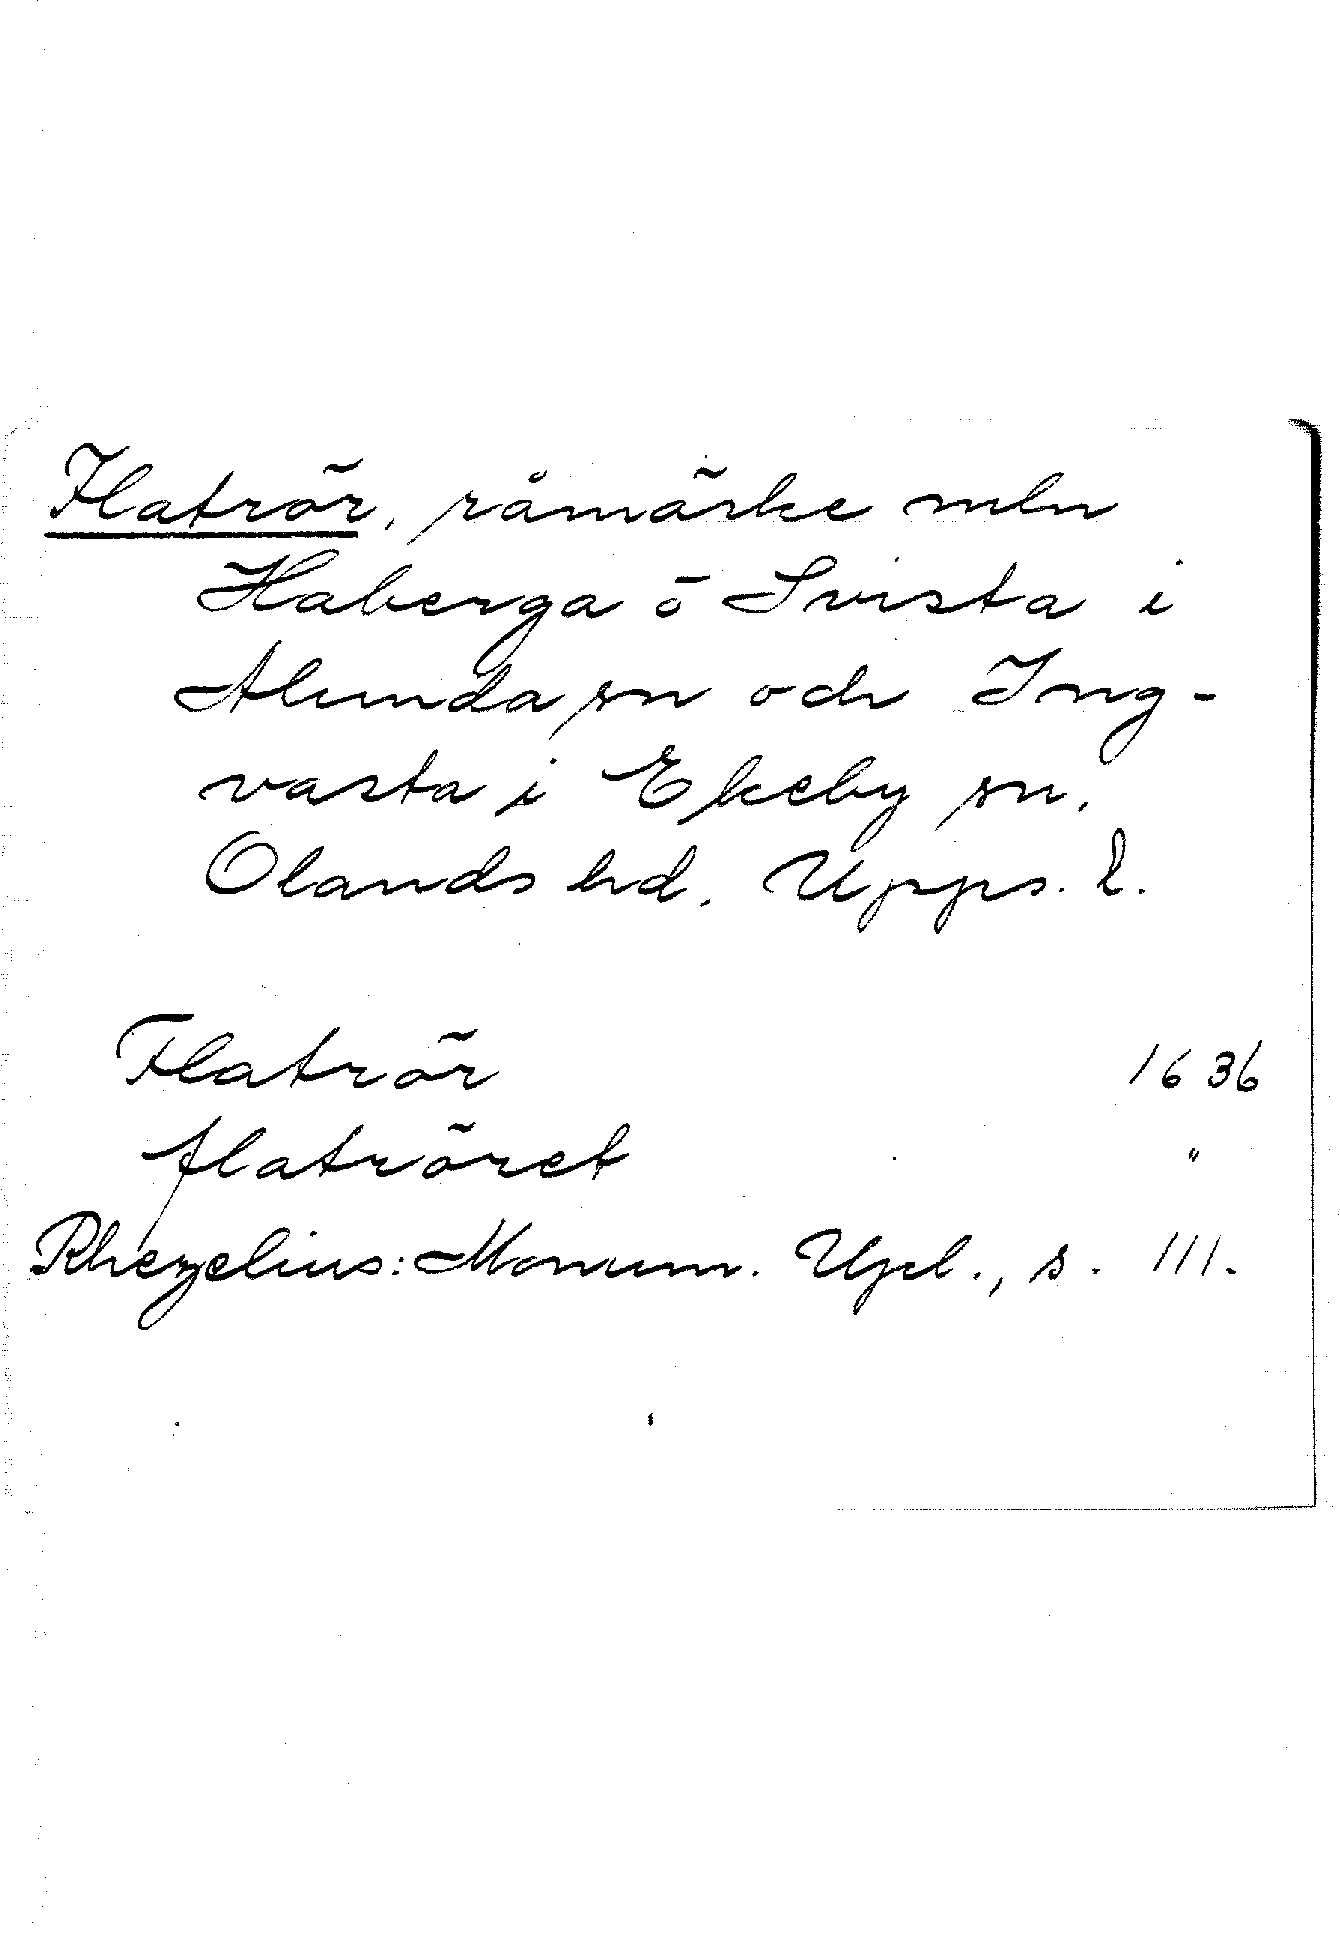 Flatrör, råmärke mln
Haberga o Svista i
Alunda sn och Ing-
vasta i Ekeby sn.
Olands hd. Upps. l.
Flatrör 1636
flatröret "
Rhezelius: Monum. Upl., s. 111.